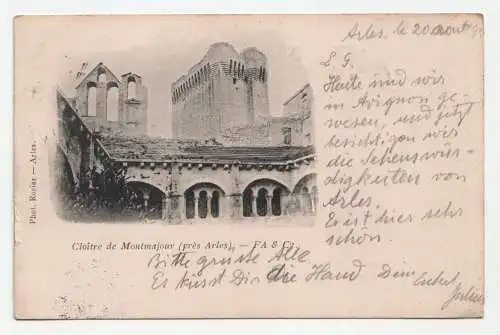 Arles, le 20 août
L. G.
Heute sind wir
in Avignon ge-
wesen, und jetzt
besichtigen wir
die Sehenswür-
digkeiten von
Arles.
Es ist hier sehr
schön.
Phot. — Arles.
Cloître de Montmajour (près Arles). — FA & Cº
Bitte grüsse Alle
Es küsst Dir die Hand Dein Enkel
Julius